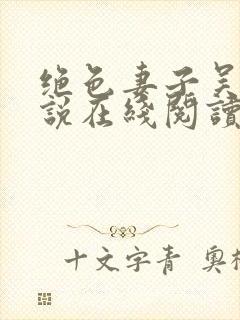 绝色妻子吴
說在綫閱讀
十文字青 奥